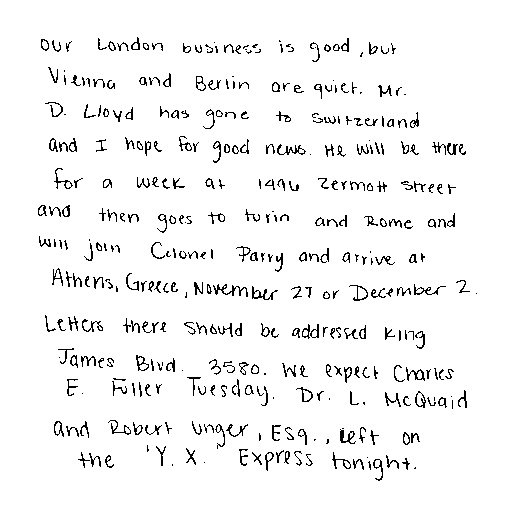 our London business is good, but
Vienna and Berlin are quiet. Mr.
D. Lloyd has gone to Switzerland
and I hope for good news. He will be there
for a week at 1496 Zermott Street
and then goes to turin and Rome and
will join Colonel Parry and arrive at
Athens, Greece, November 27 or December 2.
Letters there Should be addressed King
James Blvd. 3580. We expect Charles
E. Fuller Tuesday. Dr. L. McQuaid
and Robert Unger, Esq., left on
the "Y. X." Express tonight.